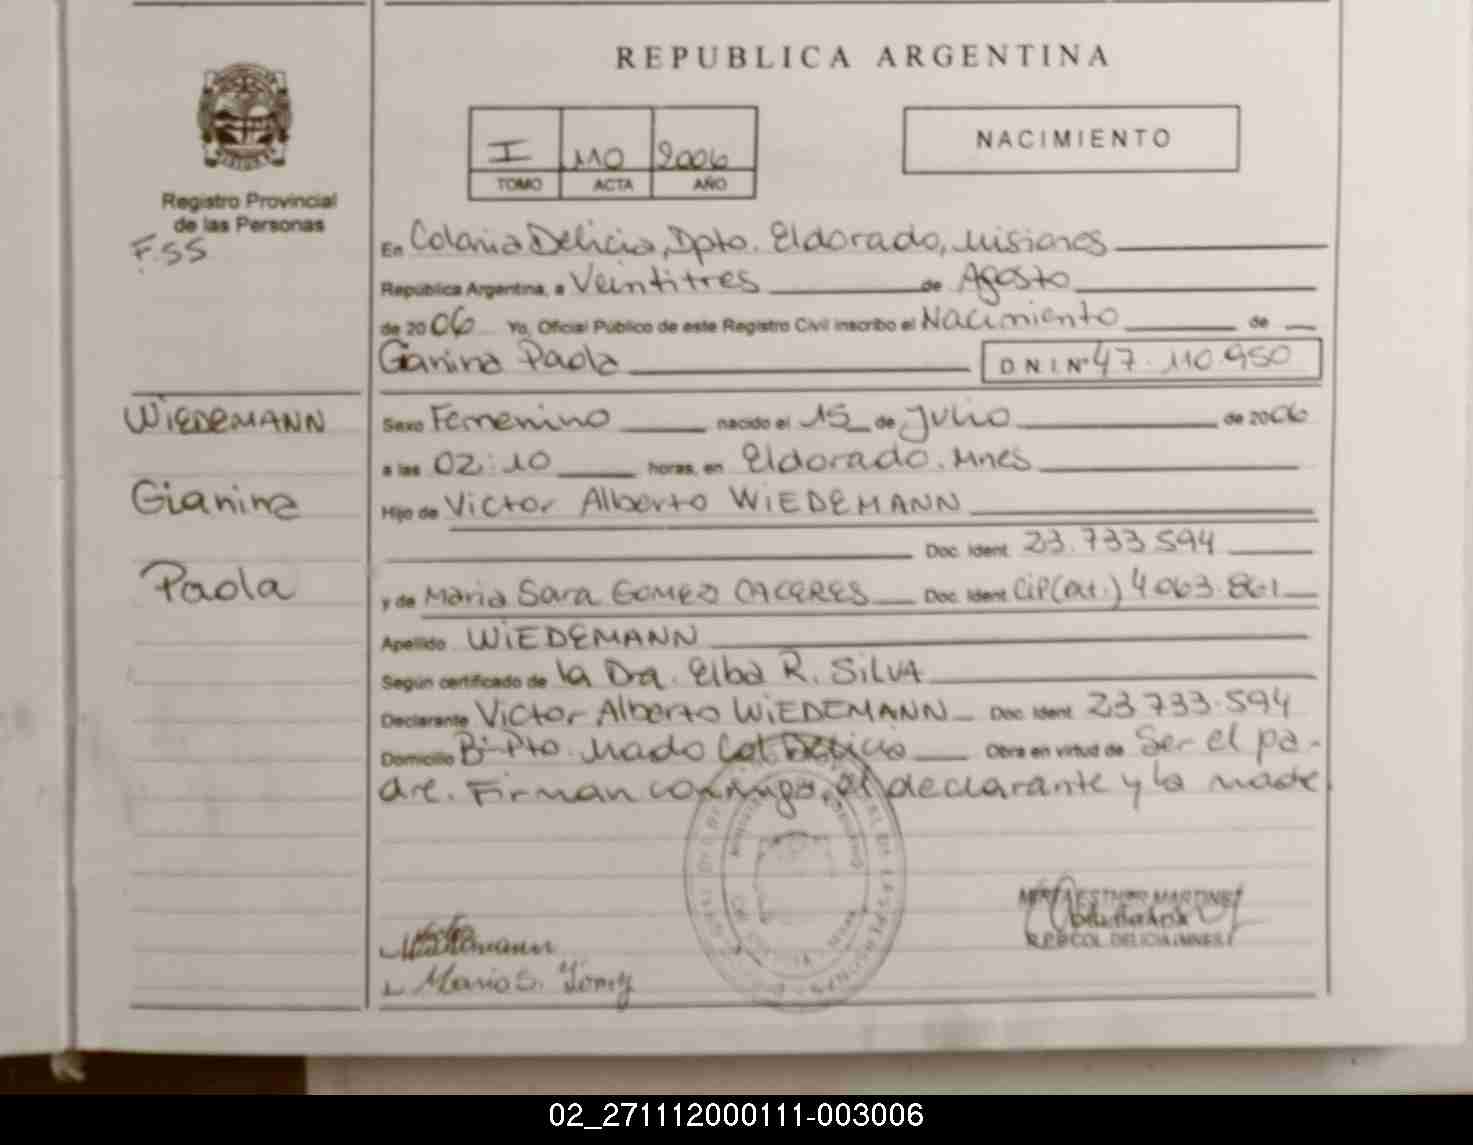 REPUBLICA ARGENTINA
I 110 2006
TOMO ACTA AÑO
NACIMIENTO
Registro Provincial
de las Personas
F.55
En Colonia Delicia, Dpto. Eldorado, Misiones
República Argentina, a Veintitres de Agosto
de 2006 Yo, Oficial Público de este Registro Civil inscribo el Nacimiento de
Gianina Paola D N I Nº 47.110.950
WIEDEMANN
Gianina
Paola
Sexo Femenino nacido el 15 de Julio de 2006
a las 02:10 horas, en Eldorado. Mnes
Hijo de Victor Alberto WIEDEMANN
Doc. Ident. 23.733.594
y de Maria Sara GOMEZ CACERES Doc. Ident. CIP(at.) 4.063.861
Apellido WIEDEMANN
Según certificado de la Dra. Elba R. SILVA
Declarante Victor Alberto WIEDEMANN Doc. Ident. 23.733.594
Domicilio Bº Pto. Mado Col. Delicia Obra en virtud de Ser el pa-
dre. Firman conmigo, el declarante y la madre
MIRTA ESTHER MARTINEZ
R.P.P COL. DELICIA (MNES)
Maria S. Gomez
02_271112000111-003006